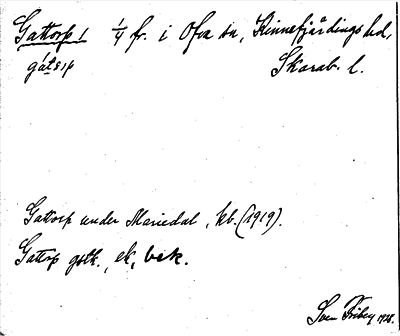 Gattorp 1 1/4 fr. i Ova sn, Kinnefjärdings hd,
gátarp Skarab. l.
Gattorp under Mariedal, kb. (1919).
Gattorp gstk., ek, bek.
Sven Friberg 1928.